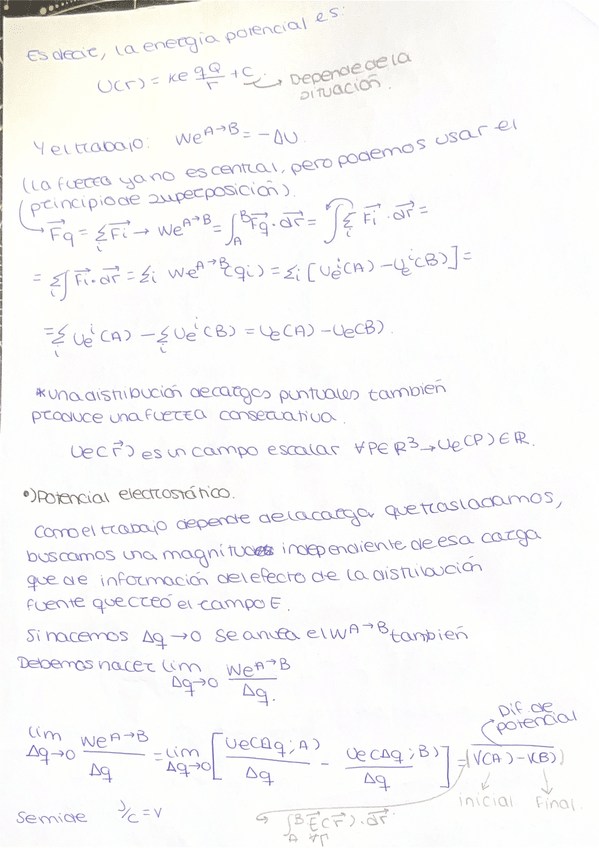 Es decir, la energía potencial es:
U(r) = Ke qQ/r + C → Depende de la situación.
Y el trabajo: We^A→B = -ΔU
(La fuerza ya no es central, pero podemos usar el
principio de superposición).
→ F⃗q = Σi F⃗i → We^A→B = ∫_A^B F⃗q · dr⃗ = ∫ Σi F⃗i · dr⃗ =
= Σi ∫ F⃗i · dr⃗ = Σi We^A→B (qi) = Σi [Ue^i(A) - Ue^i(B)] =
= Σi Ue^i(A) - Σi Ue^i(B) = Ue(A) - Ue(B).
*una distribución de cargas puntuales también
produce una fuerza conservativa.
Ue(r⃗) es un campo escalar ∀P∈R³ → Ue(P)∈R.
•) Potencial electrostático.
Como el trabajo depende de la carga que trasladamos,
buscamos una magnitud independiente de esa carga
que de información del efecto de la distribución
fuente que creó el campo E.
Si hacemos Δq→0 se anula el W^A→B también
Debemos hacer lím Δq→0 We^A→B/Δq.
Dif. de potencial
lím Δq→0 We^A→B/Δq = lím Δq→0 [Ue(Δq;A)/Δq - Ue(Δq;B)/Δq] = (V(A) - V(B))
inicial Final
Se mide J/C = V
→ ∫_A^B E⃗(r⃗) · dr⃗
∀Γ